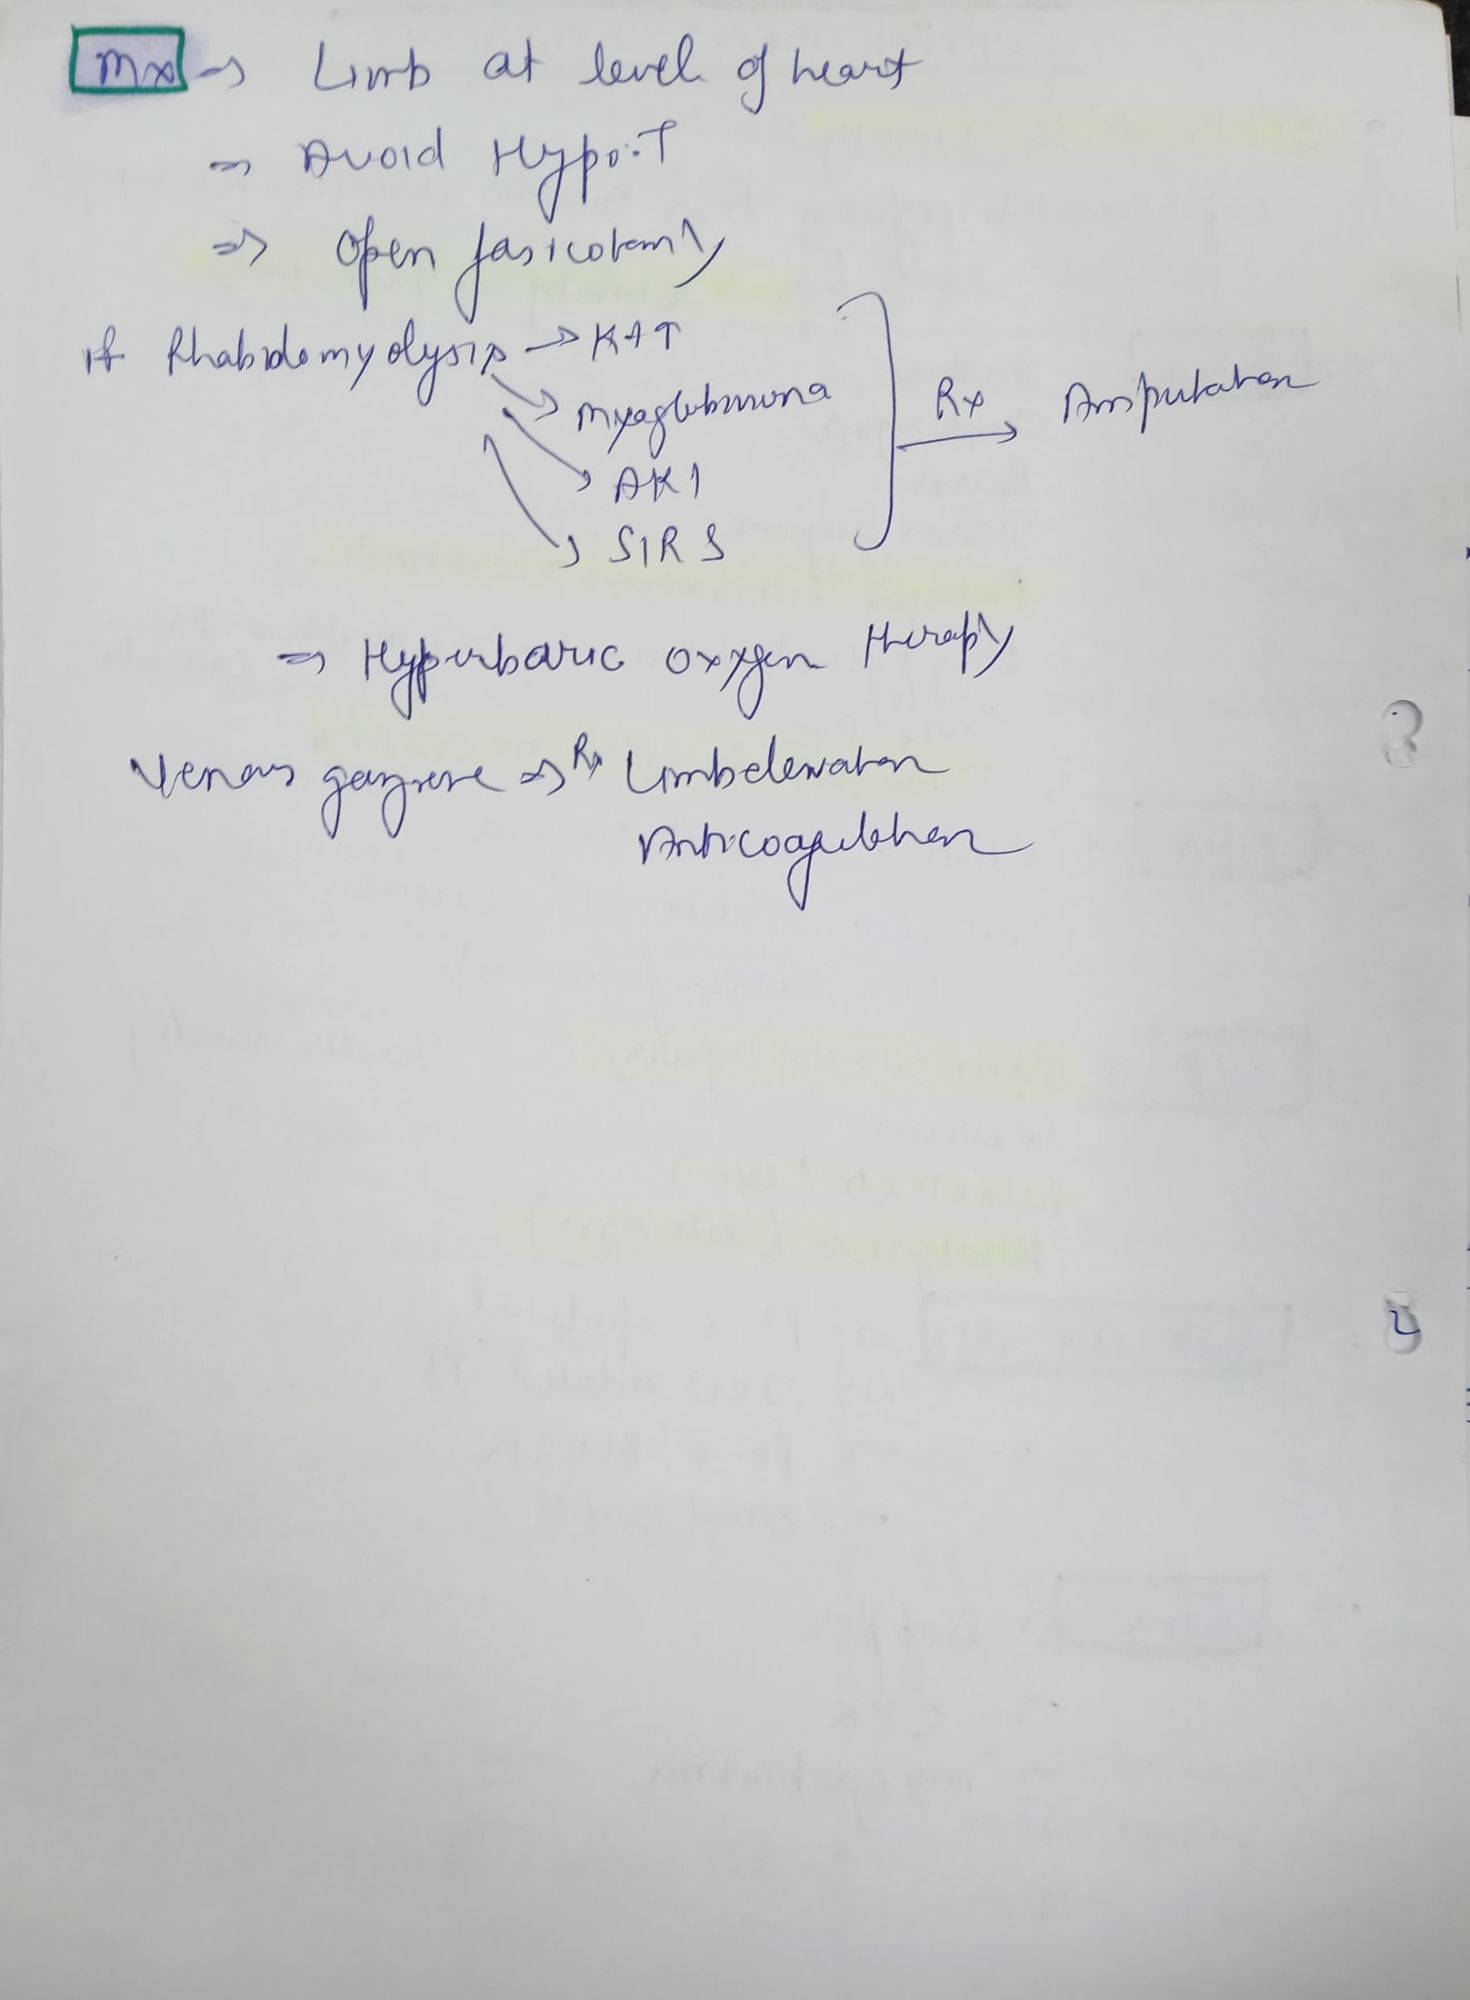 Mx ⇒ Limb at level of heart
⇒ Avoid Hypo.T
⇒ Open fasicotomy
If Rhabidomyolysis → K+↑
→ Myoglobinuria
→ AKI
→ SIRS
Rx → Amputation
⇒ Hyperbaric oxygen therapy
Venous gangrene ⇒ Rx Limb elevation
Anticoagulation